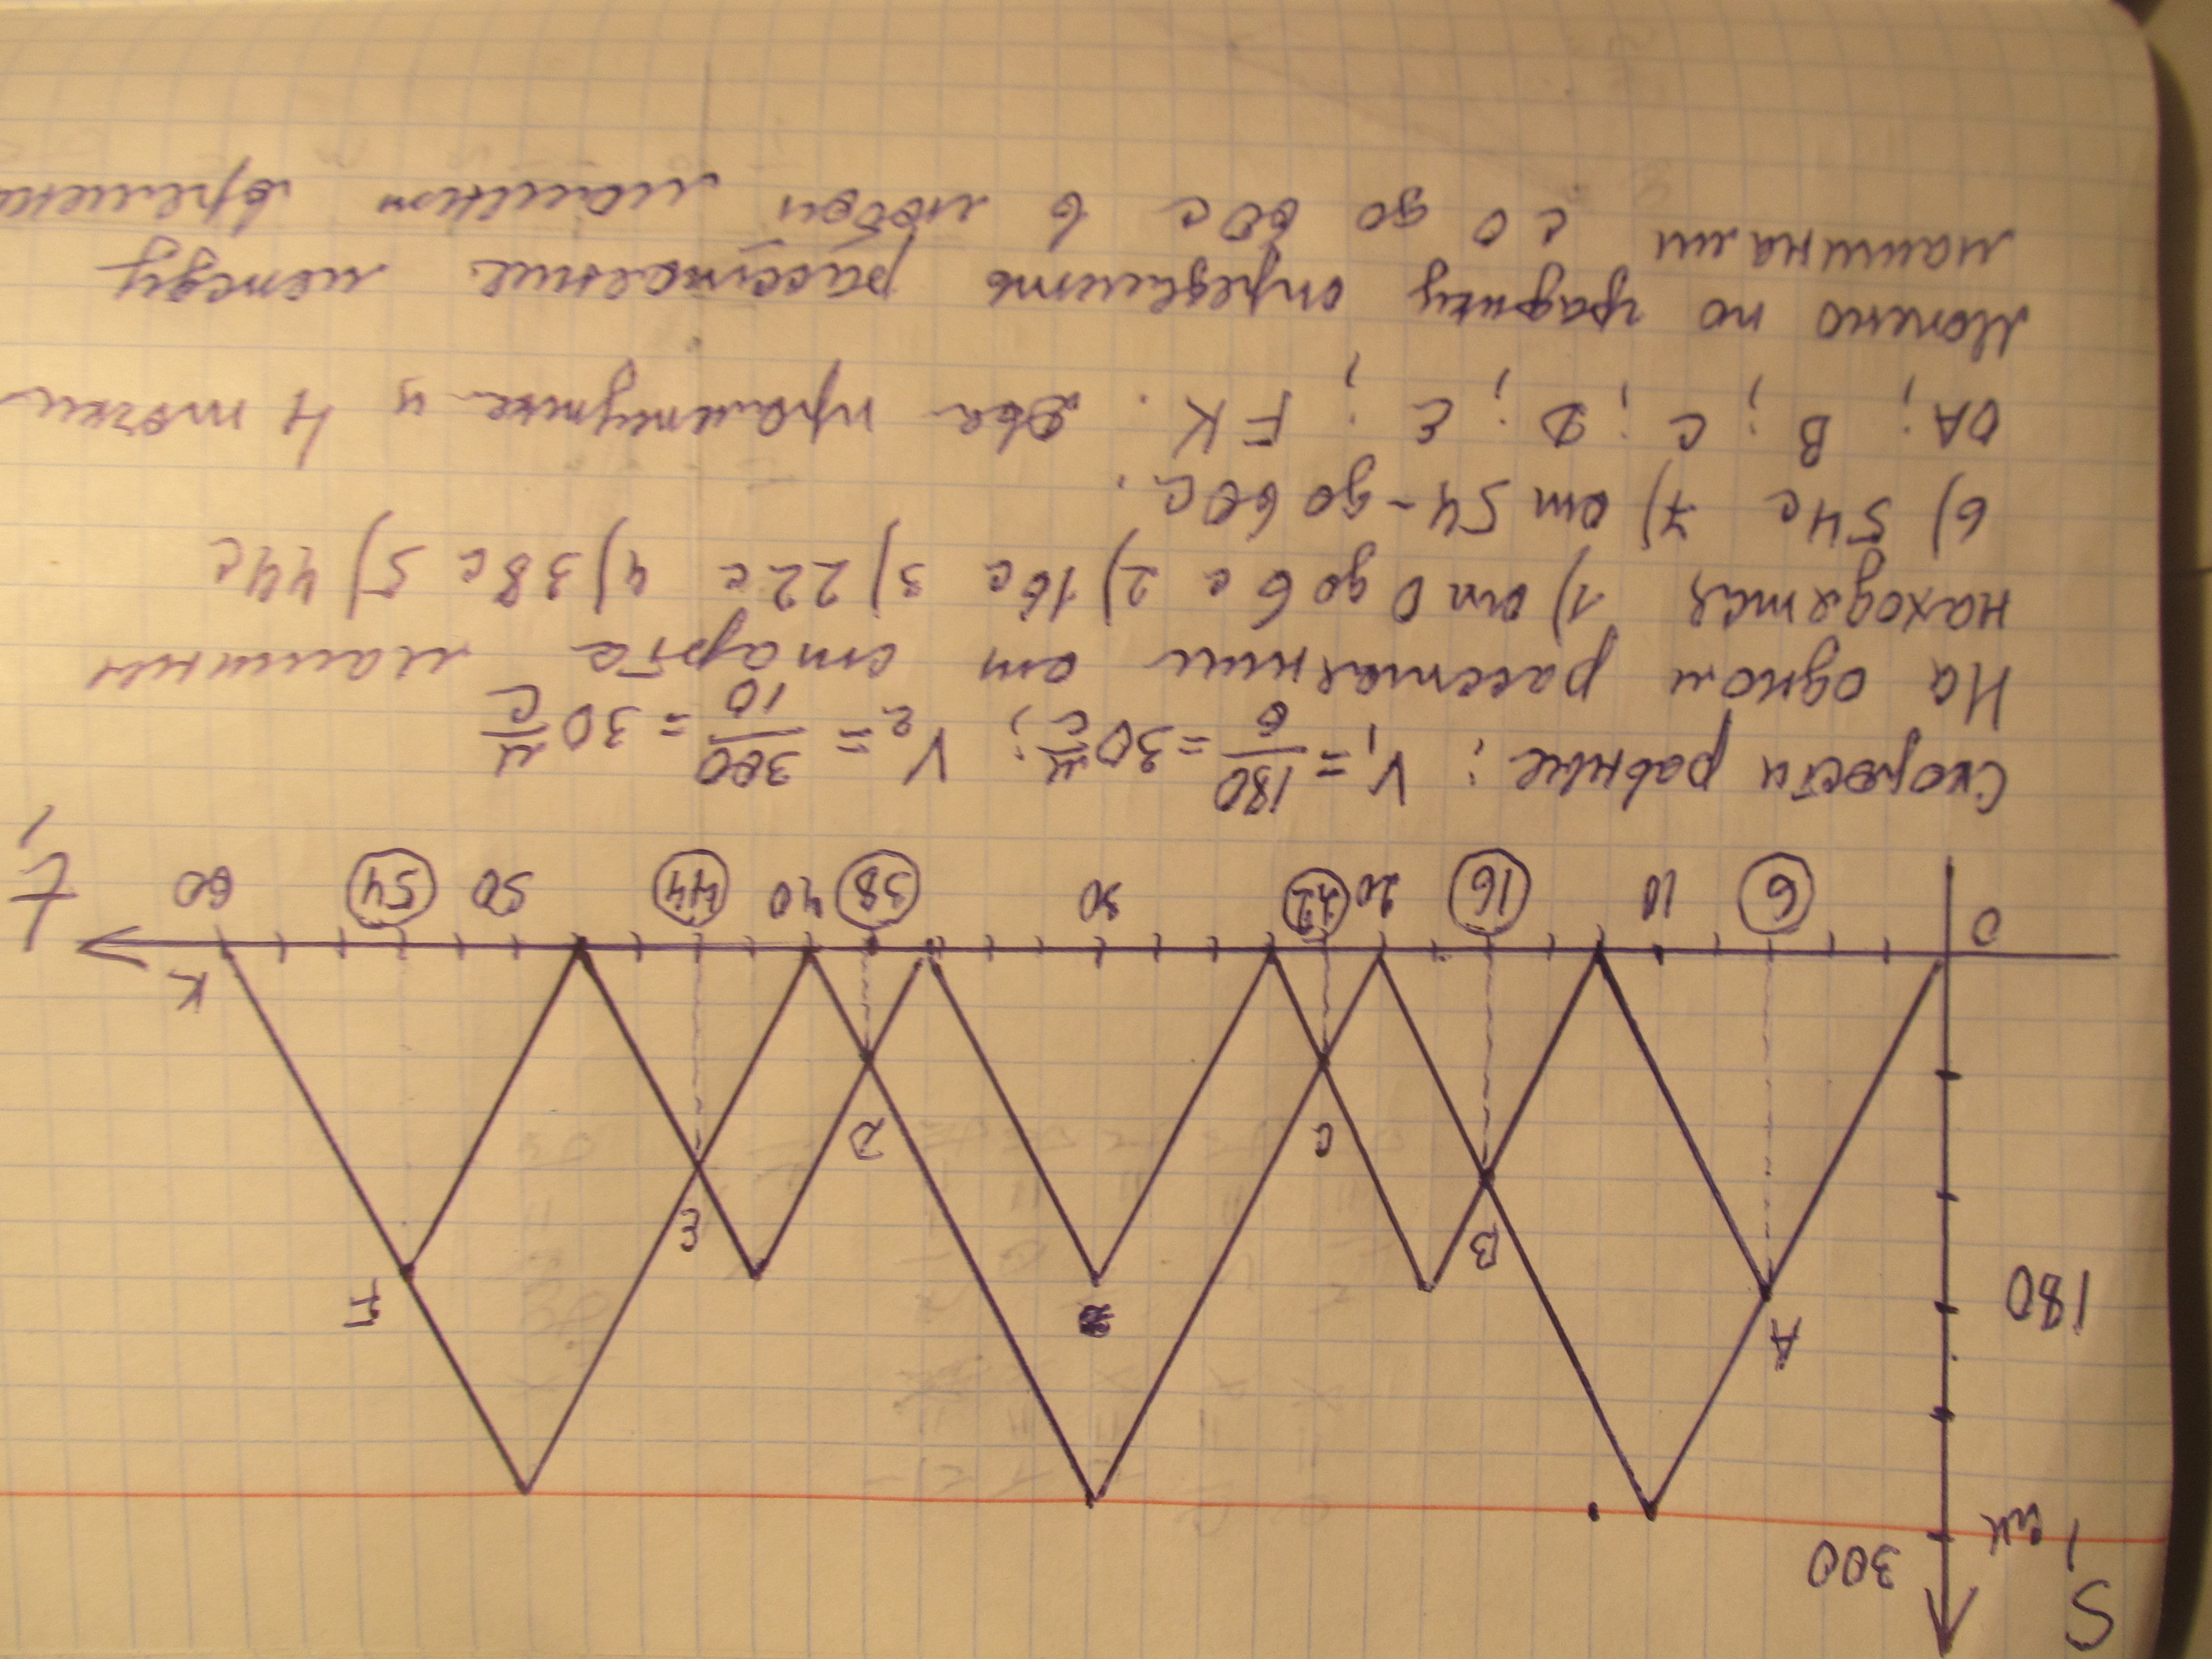 S, м
300
180
A
F
B
E
C
D
K
0
6
10
16
20
22
30
38
40
44
50
54
60
t,
Скорости равные: V₁ = 180/6 = 30 м/с; V₂ = 300/10 = 30 м/с
На одном расстоянии от старта машины
находятся 1) от 0 до 6 с 2) 16 с 3) 22 с 4) 38 с 5) 44 с
6) 54 с 7) от 54 - до 60 с.
OA; B; C; D; E; FK. Два промежутка и 4 точки
Можно по графику определить расстояние между
машинами с 0 до 60 с в любой момент времени